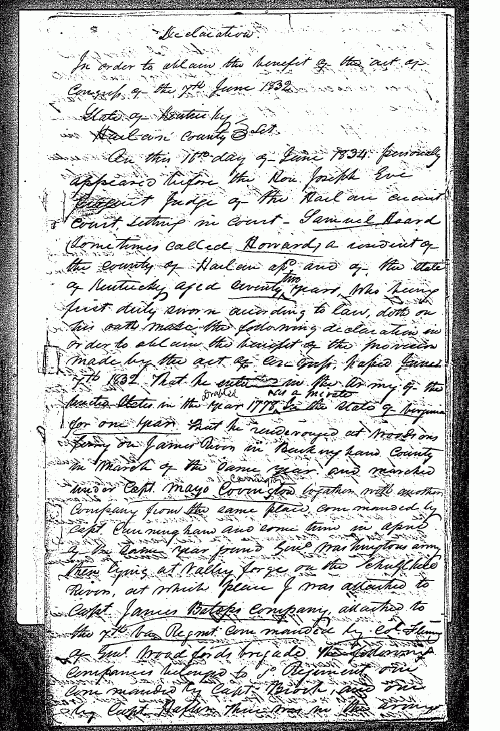 Declaration
In order to obtain the benefit of the act of
Congress of the 7th June 1832
State of Kentucky
Harlan County Sct.
On this 10th day of June 1834 personally
appeared before the Hon Joseph Eve
Judge of the Harlan circuit
court setting in court - Samuel Hoard
(Sometimes called Howard) a resident of
the county of Harlan and of the state
of Kentucky aged seventy two years, who being
first duly sworn according to law, doth on
his oath make the following declaration in
order to obtain the benefit of the provision
made by the act of Congress passed June
7th 1832. That he in the army of the
United States in the year 1778 In the State of Virginia
for one year that he rendezvoused at
ferry on James River in Buckingham County
in March of the same year and marched
under Capt. Mayo Covington together with another
company from the same place, commanded by
Capt Cunningham and some time in April
of the same year found Genl Washingtons army
then lying at Valley forge on the Schuylkill
River, at which place I was attached to
Capt. James company, attached to
the 7th Regmt commanded by Col.
of Genl Woodfords brigade
companies belonged to Regiment, one
commanded by Capt. and one
by Capt. there was in the army